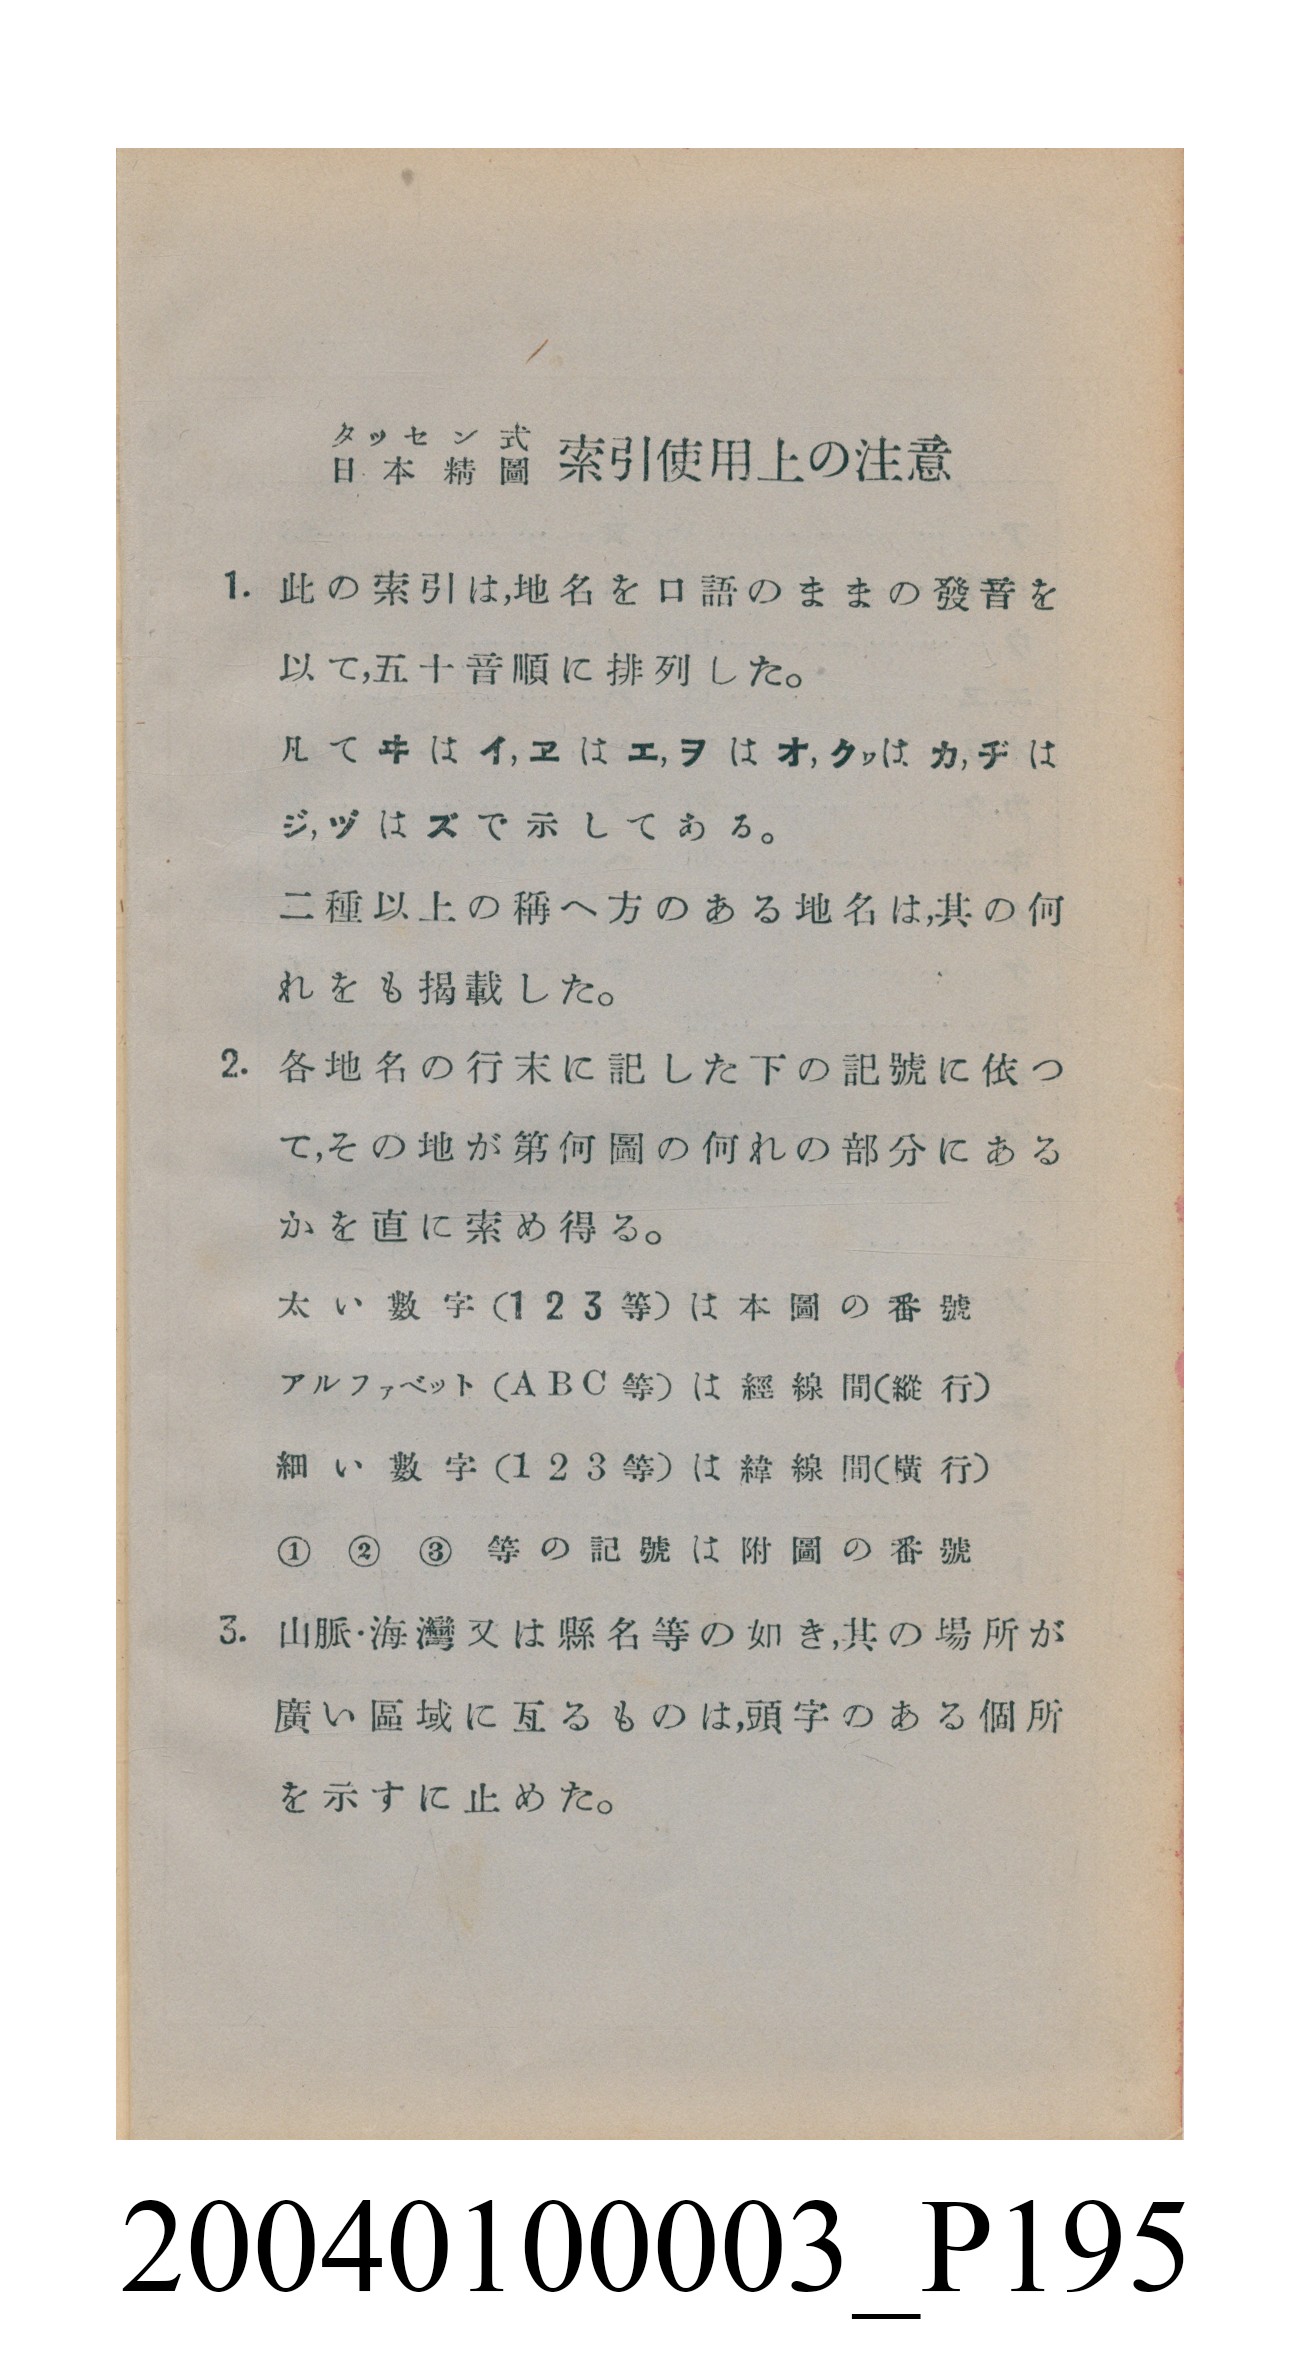 タッセン式
日本精圖
索引使用上の注意
1. 此の索引は,地名を口語のままの發音を
以て,五十音順に排列した。
凡てヰはイ,ヱはエ,ヲはオ,クヮはカ,ヂは
ジ,ヅはズで示してある。
二種以上の稱へ方のある地名は,其の何
れをも揭載した。
2. 各地名の行末に記した下の記號に依つ
て,その地が第何圖の何れの部分にある
かを直に索め得る。
太い數字(1 2 3等)は本圖の番號
アルファベット(A B C等)は經線間(縱行)
細い數字(1 2 3等)は緯線間(橫行)
① ② ③ 等の記號は附圖の番號
3. 山脈·海灣又は縣名等の如き,其の場所が
廣い區域に亙るものは,頭字のある個所
を示すに止めた。
20040100003_P195